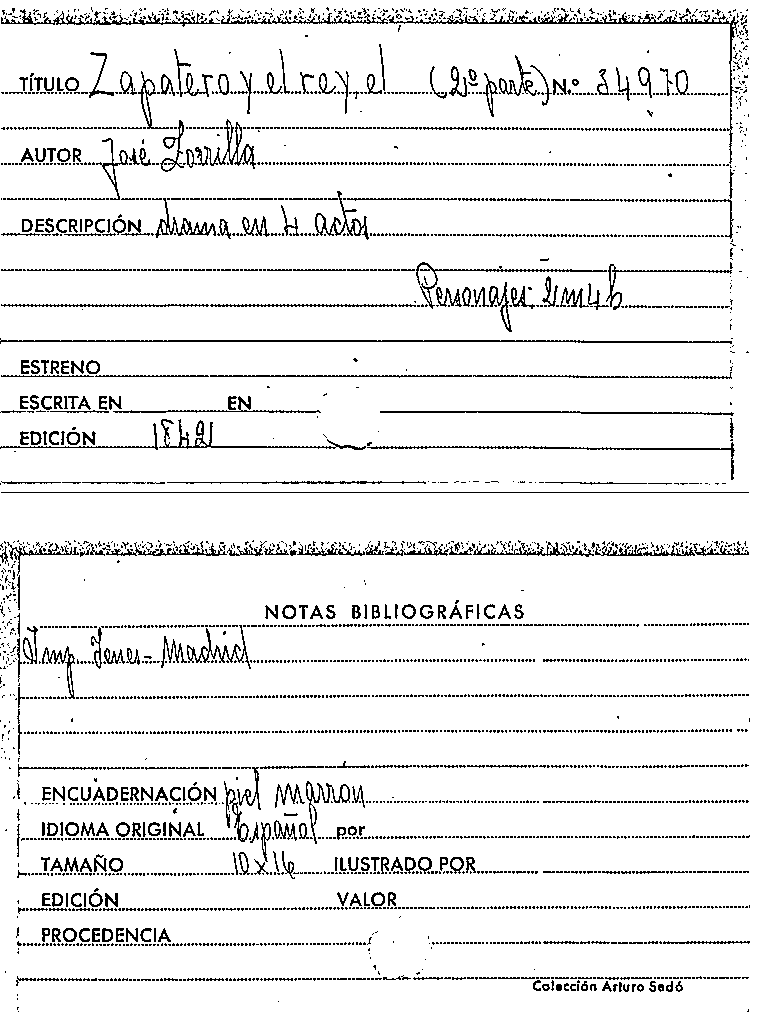 TÍTULO Zapatero y el rey, el (2ª parte) N.º 34970
AUTOR José Zorrilla
DESCRIPCIÓN drama en 4 actos
Personajes:
ESTRENO
ESCRITA EN EN
EDICIÓN 1842
NOTAS BIBLIOGRÁFICAS
Imp Yenes - Madrid
ENCUADERNACIÓN piel marron
IDIOMA ORIGINAL Español por
TAMAÑO 10 x 16 ILUSTRADO POR
EDICIÓN VALOR
PROCEDENCIA
Colección Arturo Sedó